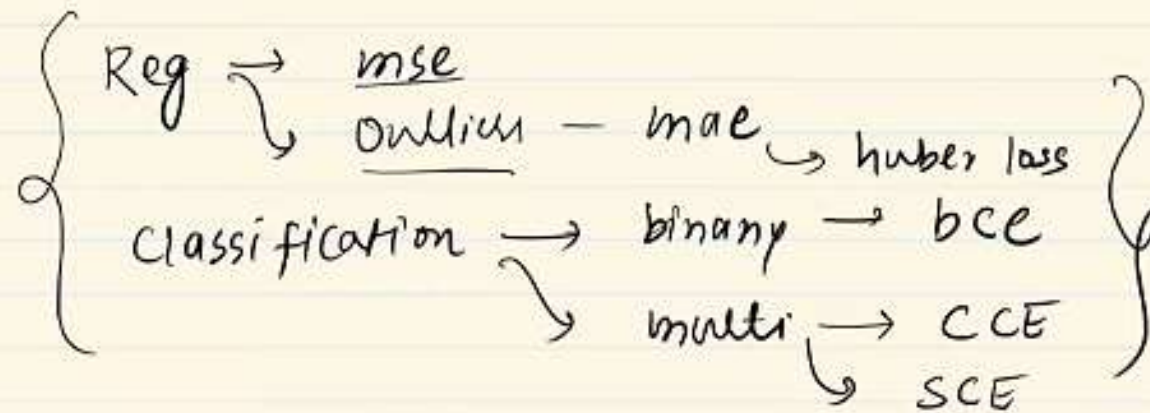 Reg → mse
outliers — mae → huber loss
classification → binary → bce
multi → CCE
SCE